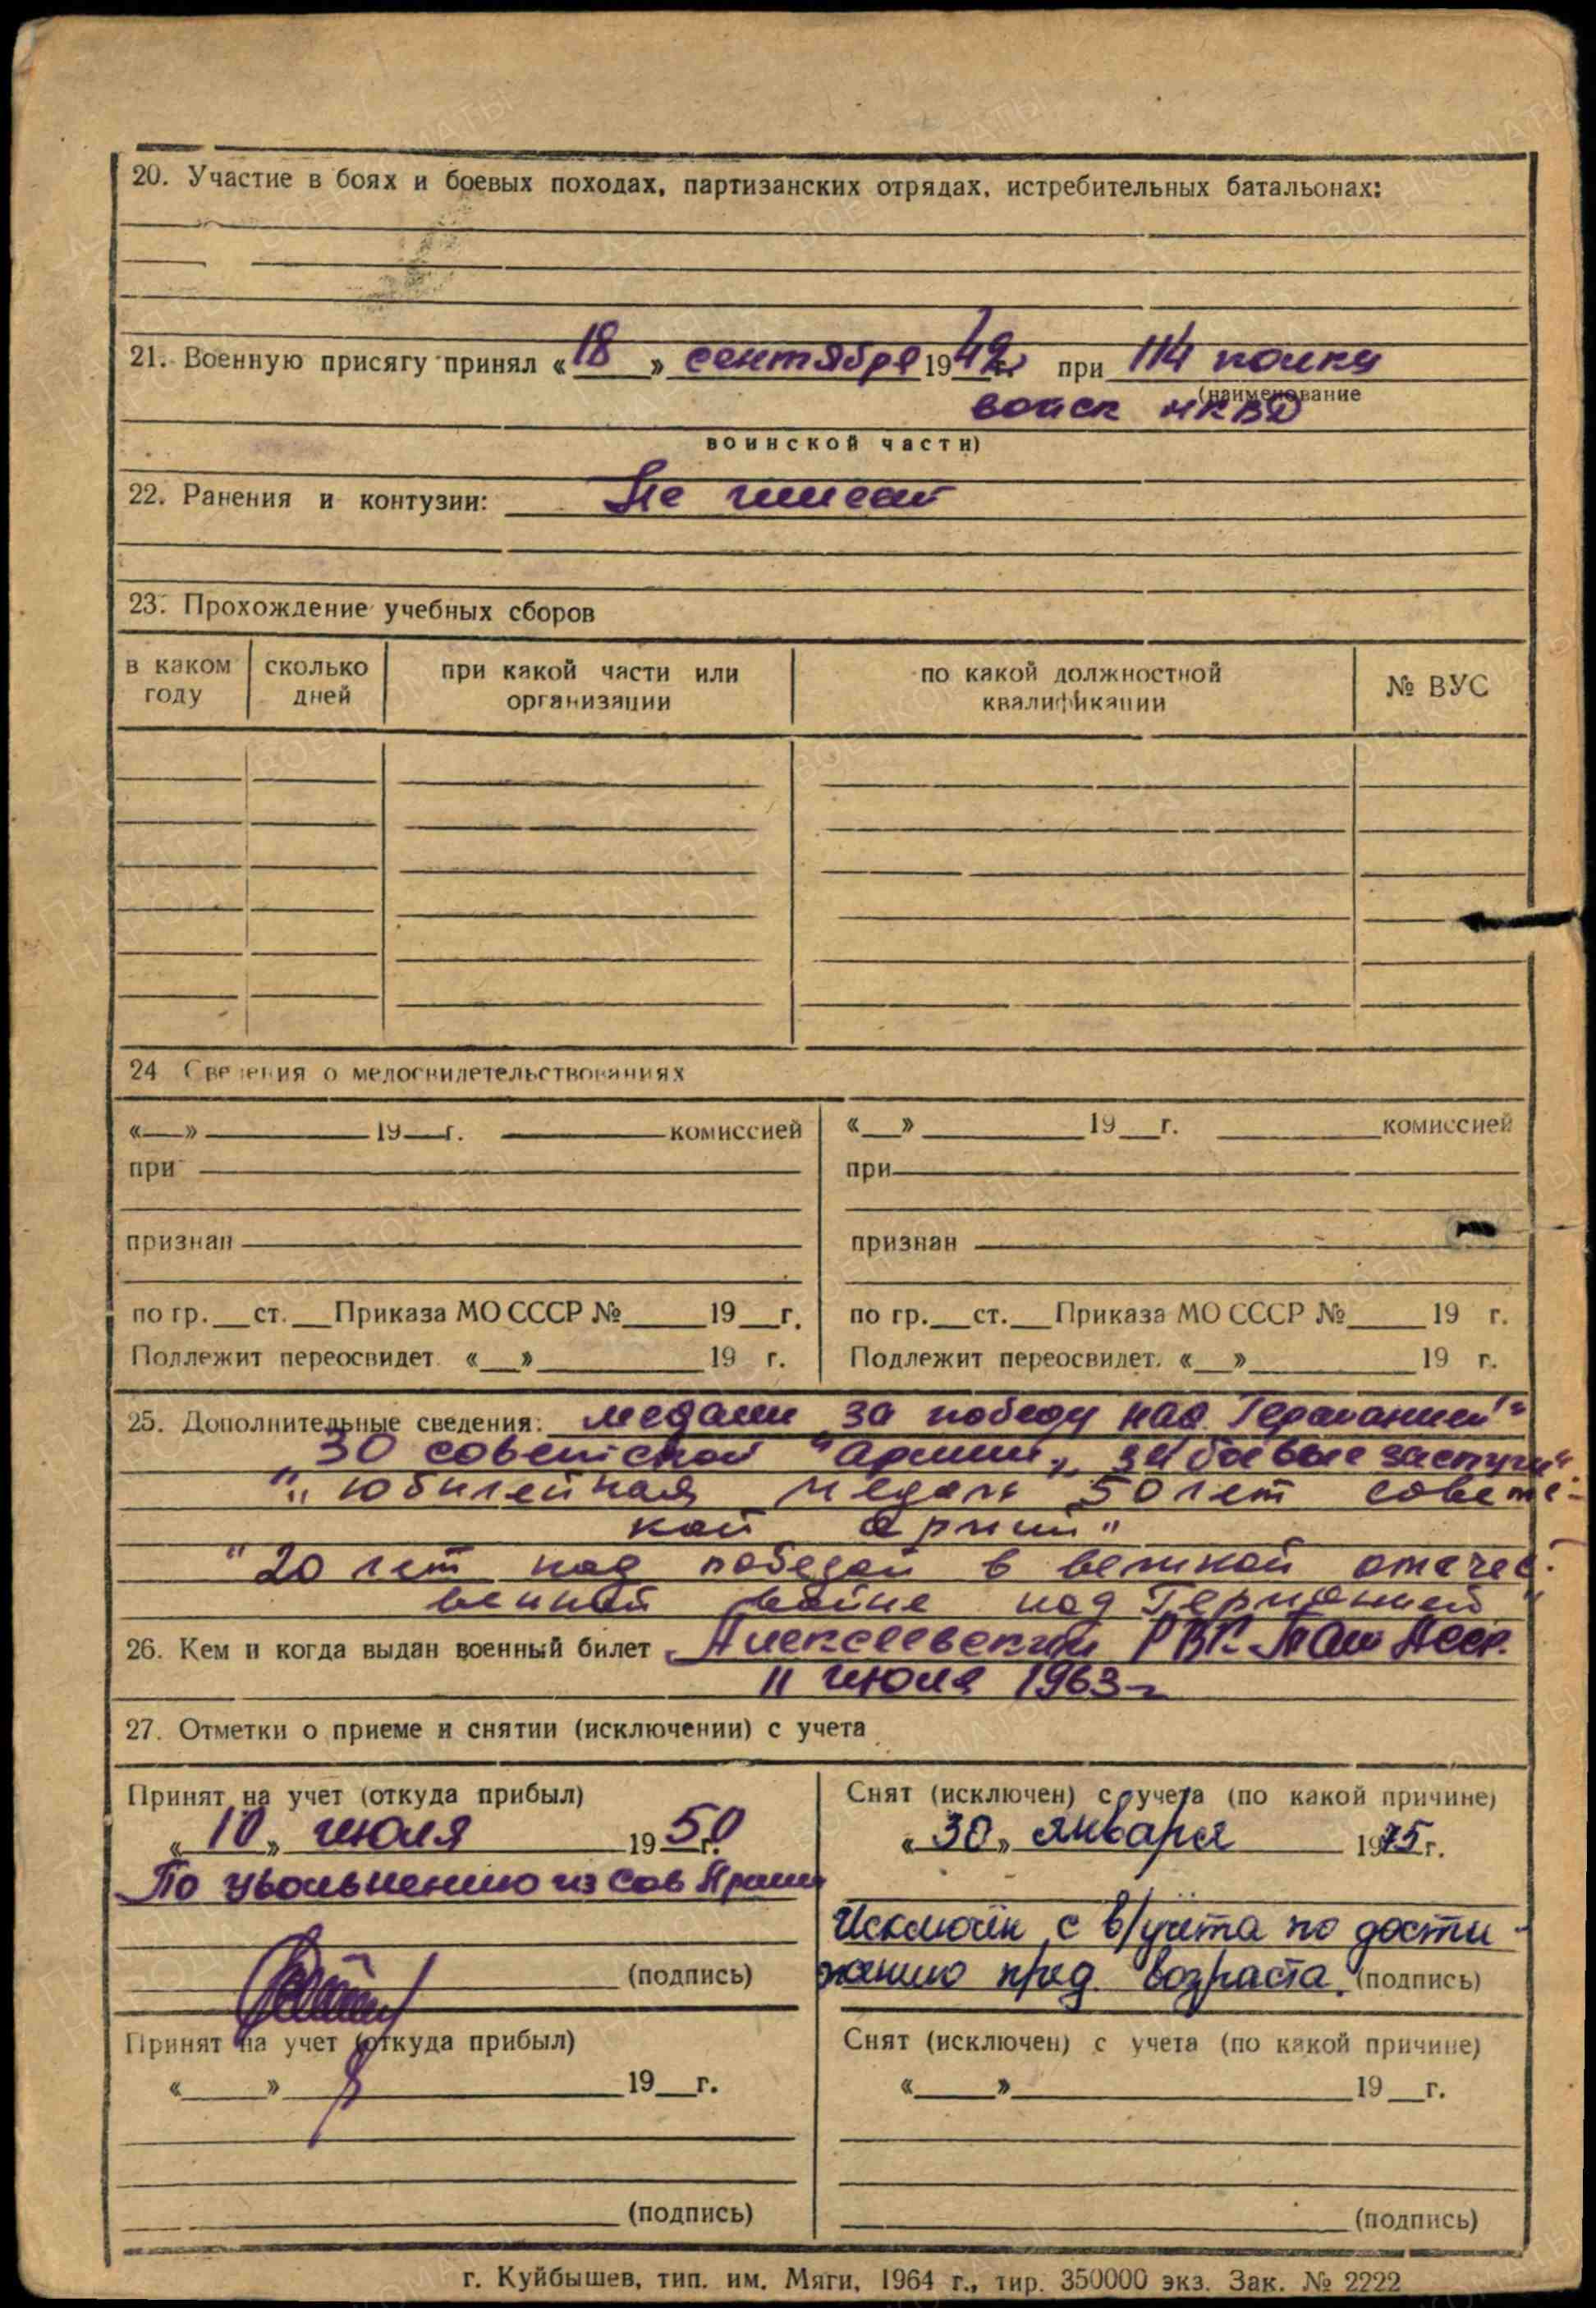 20. Участие в боях и боевых походах, партизанских отрядах, истребительных батальонах:
21. Военную присягу принял «18» сентября 1942г. при 114 полку
(наименование
войск НКВД
воинской части)
22. Ранения и контузии: Не имеет
23. Прохождение учебных сборов
в каком году сколько дней при какой части или организации по какой должностной квалификации № ВУС
24 Сведения о медосвидетельствованиях
«__» ____ 19__г. ____ комиссией «__» ____ 19__г. ____ комиссией
при при
признан признан
по гр.__ст.__Приказа МО СССР №____19__г. по гр.__ст.__Приказа МО СССР №____19 г.
Подлежит переосвидет. «__»____19 г. Подлежит переосвидет. «__»____19 г.
25. Дополнительные сведения: медали „за победу над Германией"
„30 советской "Армии„ „за боевые заслуги"
"„ юбилейная медаль 50 лет советс-
кой армии"
"20 лет над победой в великой отечес-
венной войне над Германией"
26. Кем и когда выдан военный билет Алексеевским РВК ТАССР.
11 июля 1963 г
27. Отметки о приеме и снятии (исключении) с учета
Принят на учет (откуда прибыл)
«10» июля 1950г.
По увольнению из Сов Армии
(подпись)
Снят (исключен) с учета (по какой причине)
«30» января 1975г.
Исключён с в/учёта по дости-
жению пред. возраста. (подпись)
Принят на учет (откуда прибыл)
«____»____19__г.
(подпись)
Снят (исключен) с учета (по какой причине)
«____»____19__г.
(подпись)
г. Куйбышев, тип. им. Мяги, 1964 г., тир. 350000 экз. Зак. № 2222